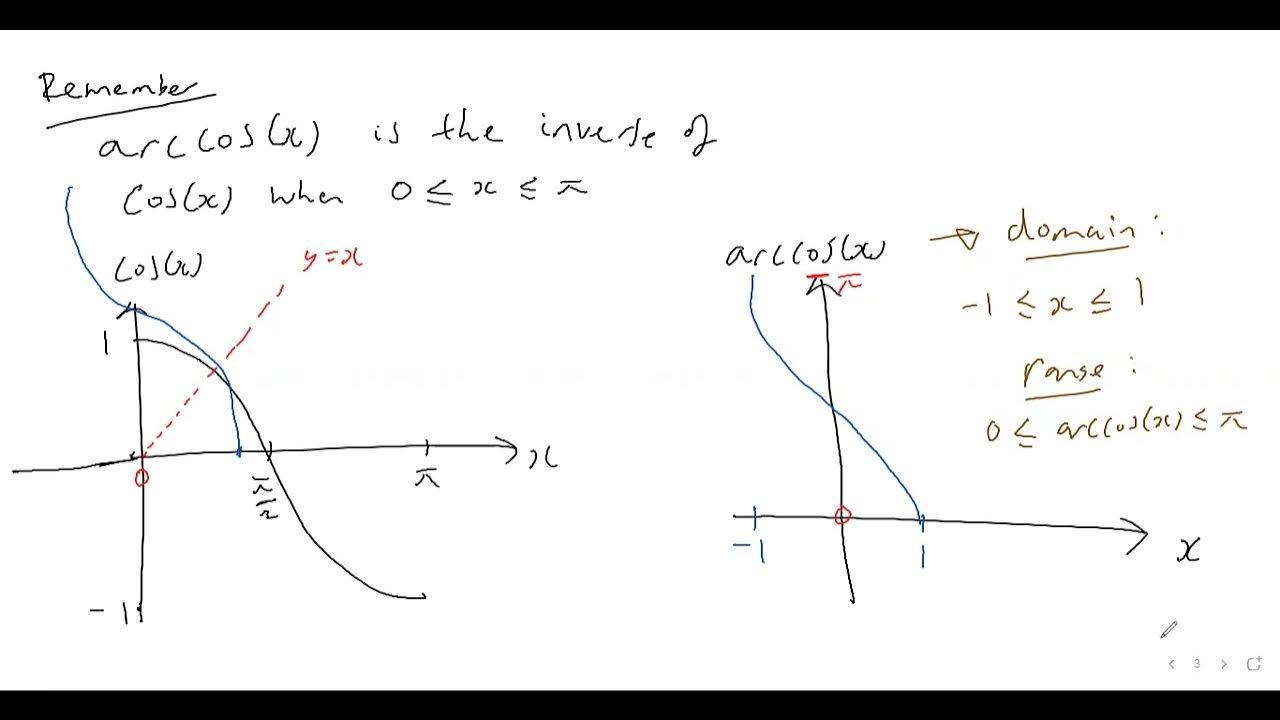 Remember
arccos(x) is the inverse of
cos(x) when 0 ≤ x ≤ π
cos(x)
y=x
1
0
π/2
π
x
-1
arccos(x)
π
-1
0
1
x
→ domain:
-1 ≤ x ≤ 1
range:
0 ≤ arccos(x) ≤ π
< 3 >